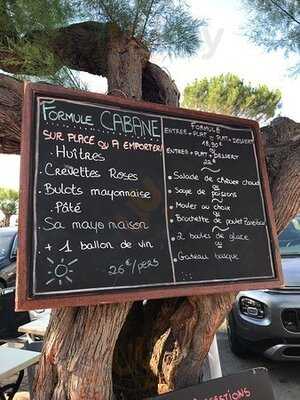 FORMULE CABANE
SUR PLACE OU A EMPORTER!
- Huîtres
- Crevettes Roses
- Bulots mayonnaise
- Pâté
Sa mayo maison
+ 1 ballon de vin
26€/pers
FORMULE
ENTREE + PLAT ou PLAT + DESSERT
18,90 €
ou
ENTREE + PLAT + DESSERT
22 €
Salade de chèvre chaud
ou
Soupe de poissons
Moules au choix
ou
Brochette de poulet
2 boules de glace
ou
Gateau basque